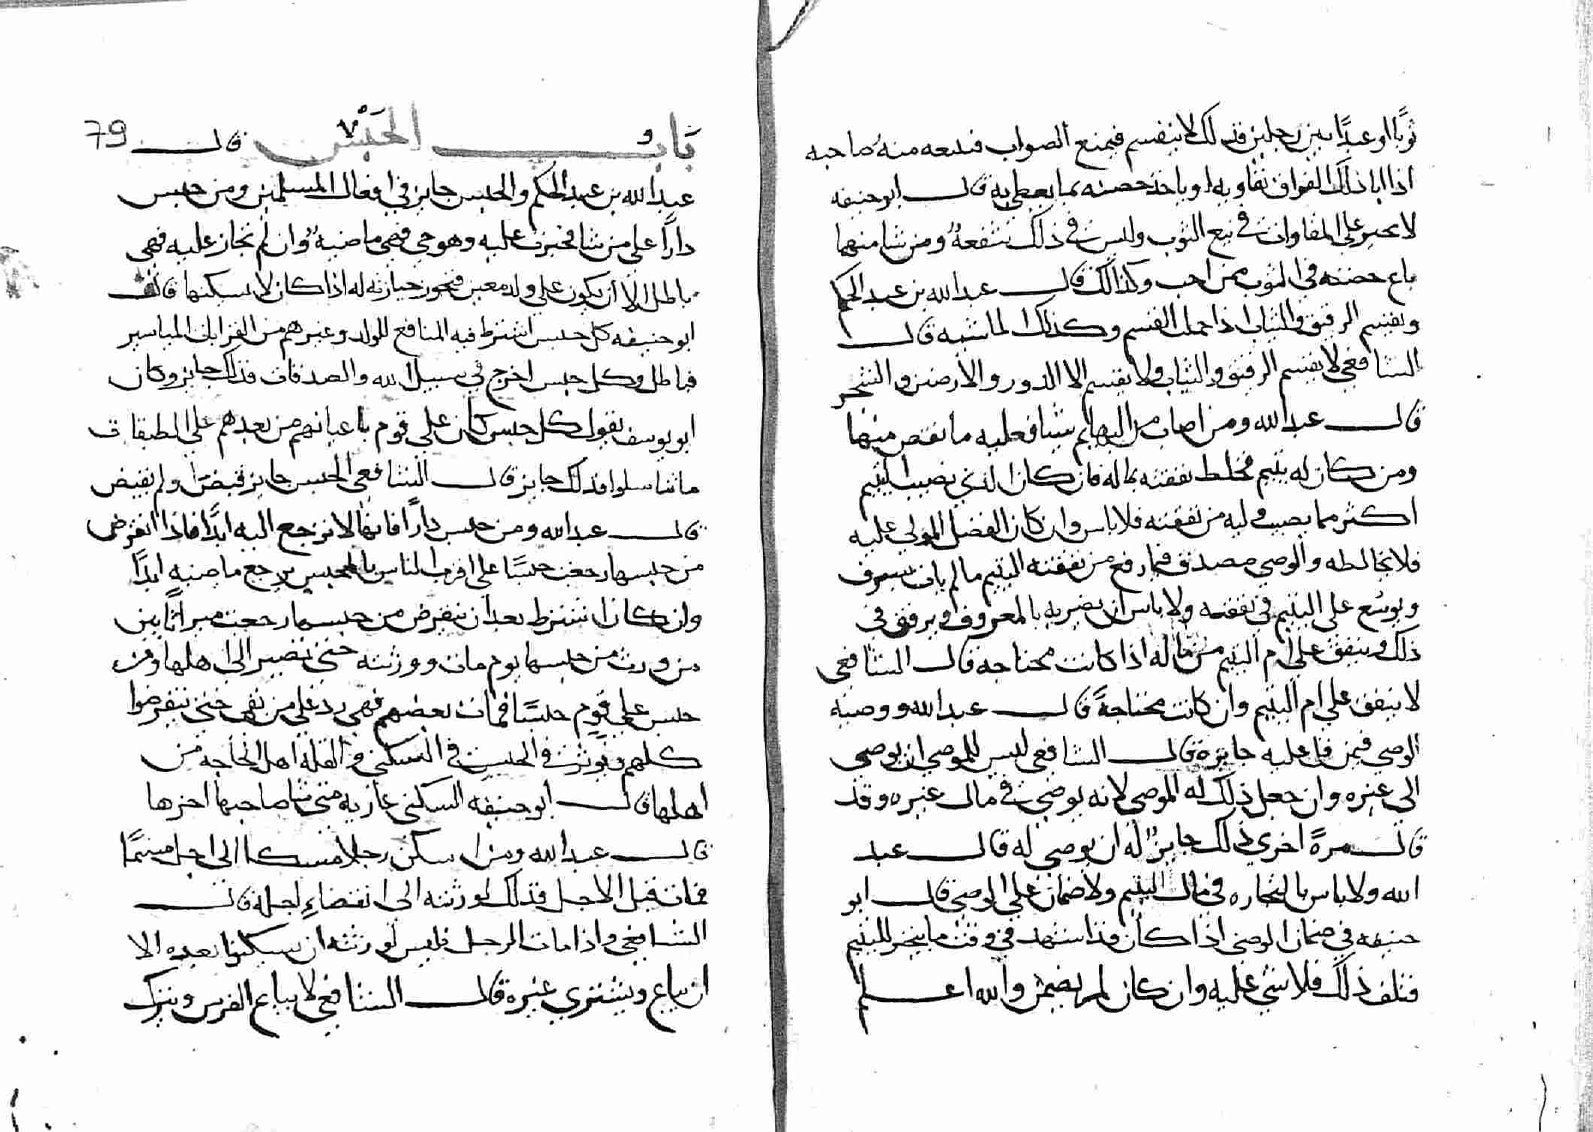 ثوبًا او عبدًا بين رجلين فذلك لا ينقسم فيمنع الصواب فندعه منه صاحبه
اذا ابا ذلك الفوا ان تقاويه او ياخذ حصته بما يعطى به قال ابو حنيفه
لا يجبر على المقاواة في بيع الثوب وليس في ذلك شفعة ومن شا منهما
باع حصته في الثوب ممن احب وكذلك قال عبد الله بن عبد الحكم
ويقسم الرقيق والثياب اذا حمل القسم وكذلك لما اشبه قال
الشافعي لا يقسم الرقيق والثياب ولا يقسم الا الدور والارضين والشجر
قال عبد الله ومن اصاب من البهايم شيا فعليه ما نقص منها
ومن كان له يتيم فخلط نفقته بماله فان كان الذي يصيب اليتيم
اكثر مما يصيب وليه من نفقته فلا باس وان كان الفضل للمولى عليه
فلا يخالطه والوصي مصدق فيما رفع من نفقته اليتيم ما لم يات بسرف
ويوسع على اليتيم في نفقته ولا باس ان يضربه بالمعروف ويرفق في
ذلك وينفق على ام اليتيم من ماله اذا كانت محتاجه قال الشافعي
لا ينفق على ام اليتيم وان كانت محتاجةً قال عبد الله ووصية
الوصي فيمن قبل عليه جايزه قال الشافعي ليس للموصي ان يوصي
الى غيره وان جعل ذلك له الموصي لانه يوصي في مال غيره وقد
قال مرةً اخرى ذلك جايز له ان يوصي له قال عبد
الله ولا باس بالتجاره في مال اليتيم ولا ضمان على الوصي قال ابو
حنيفه في ضمان الوصي اذا كان قد اشهد في وقت ما يتجر لليتيم
فتلف ذلك فلا شي عليه وان كان لم يضمن والله اعلم
باب الحبس قال 79
عبد الله بن عبد الحكم والحبس جايز في افعال المسلمين ومن حبس
دارًا على من شا فحيزت عليه وهو حي فهي ماضية وان لم تحاز عليه فهي
باطل الا ان يكون على ولد معين فتجوز حيازته له اذا كان لا يسكنها قال
ابو حنيفه كل حبس اشترط فيه المنافع للولد وغيرهم من القرابات المياسير
فباطل وكل حبس اخرج في سبيل الله والصدقات فذلك جايز وكان
ابو يوسف يقول كل حبس كان على قوم باعيانهم من بعدهم على الطبقات
ما تناسلوا فذلك جايز قال الشافعي الحبس جايز قبض او لم يقبض
قال عبد الله ومن حبس دارًا فانها لا ترجع اليه ابدًا فاذا انقرض
من حبسها رجعت حبسًا على اقرب الناس بالمحبس يرجع ماضيه ابدًا
وان كان اشترط بعد ان ينقرض من حبسها رجعت ميراثًا بين
من ورث من حبسها يوم مات وورثته حتى تصير الى اهلها ومن
حبس على قوم حبسًا فمات بعضهم فهي رد على من بقي حتى ينقرضوا
كلهم ويوثر في الحبس في السكنى والغلة اهل الحاجه من
اهلها قال ابو حنيفه السكنى عاريه متى شا صاحبها اخذها
قال عبد الله ومن اسكن رجلا مسكنا الى اجل مسمًا
فمات قبل الاجل فذلك لورثته الى انقضاء اجله قال
الشافعي واذا مات الرجل فليس لورثته ان يسكنوا بعده الا
ان يباع ويشترى غيره قال الشافعي لا يباع الفرس ويترك